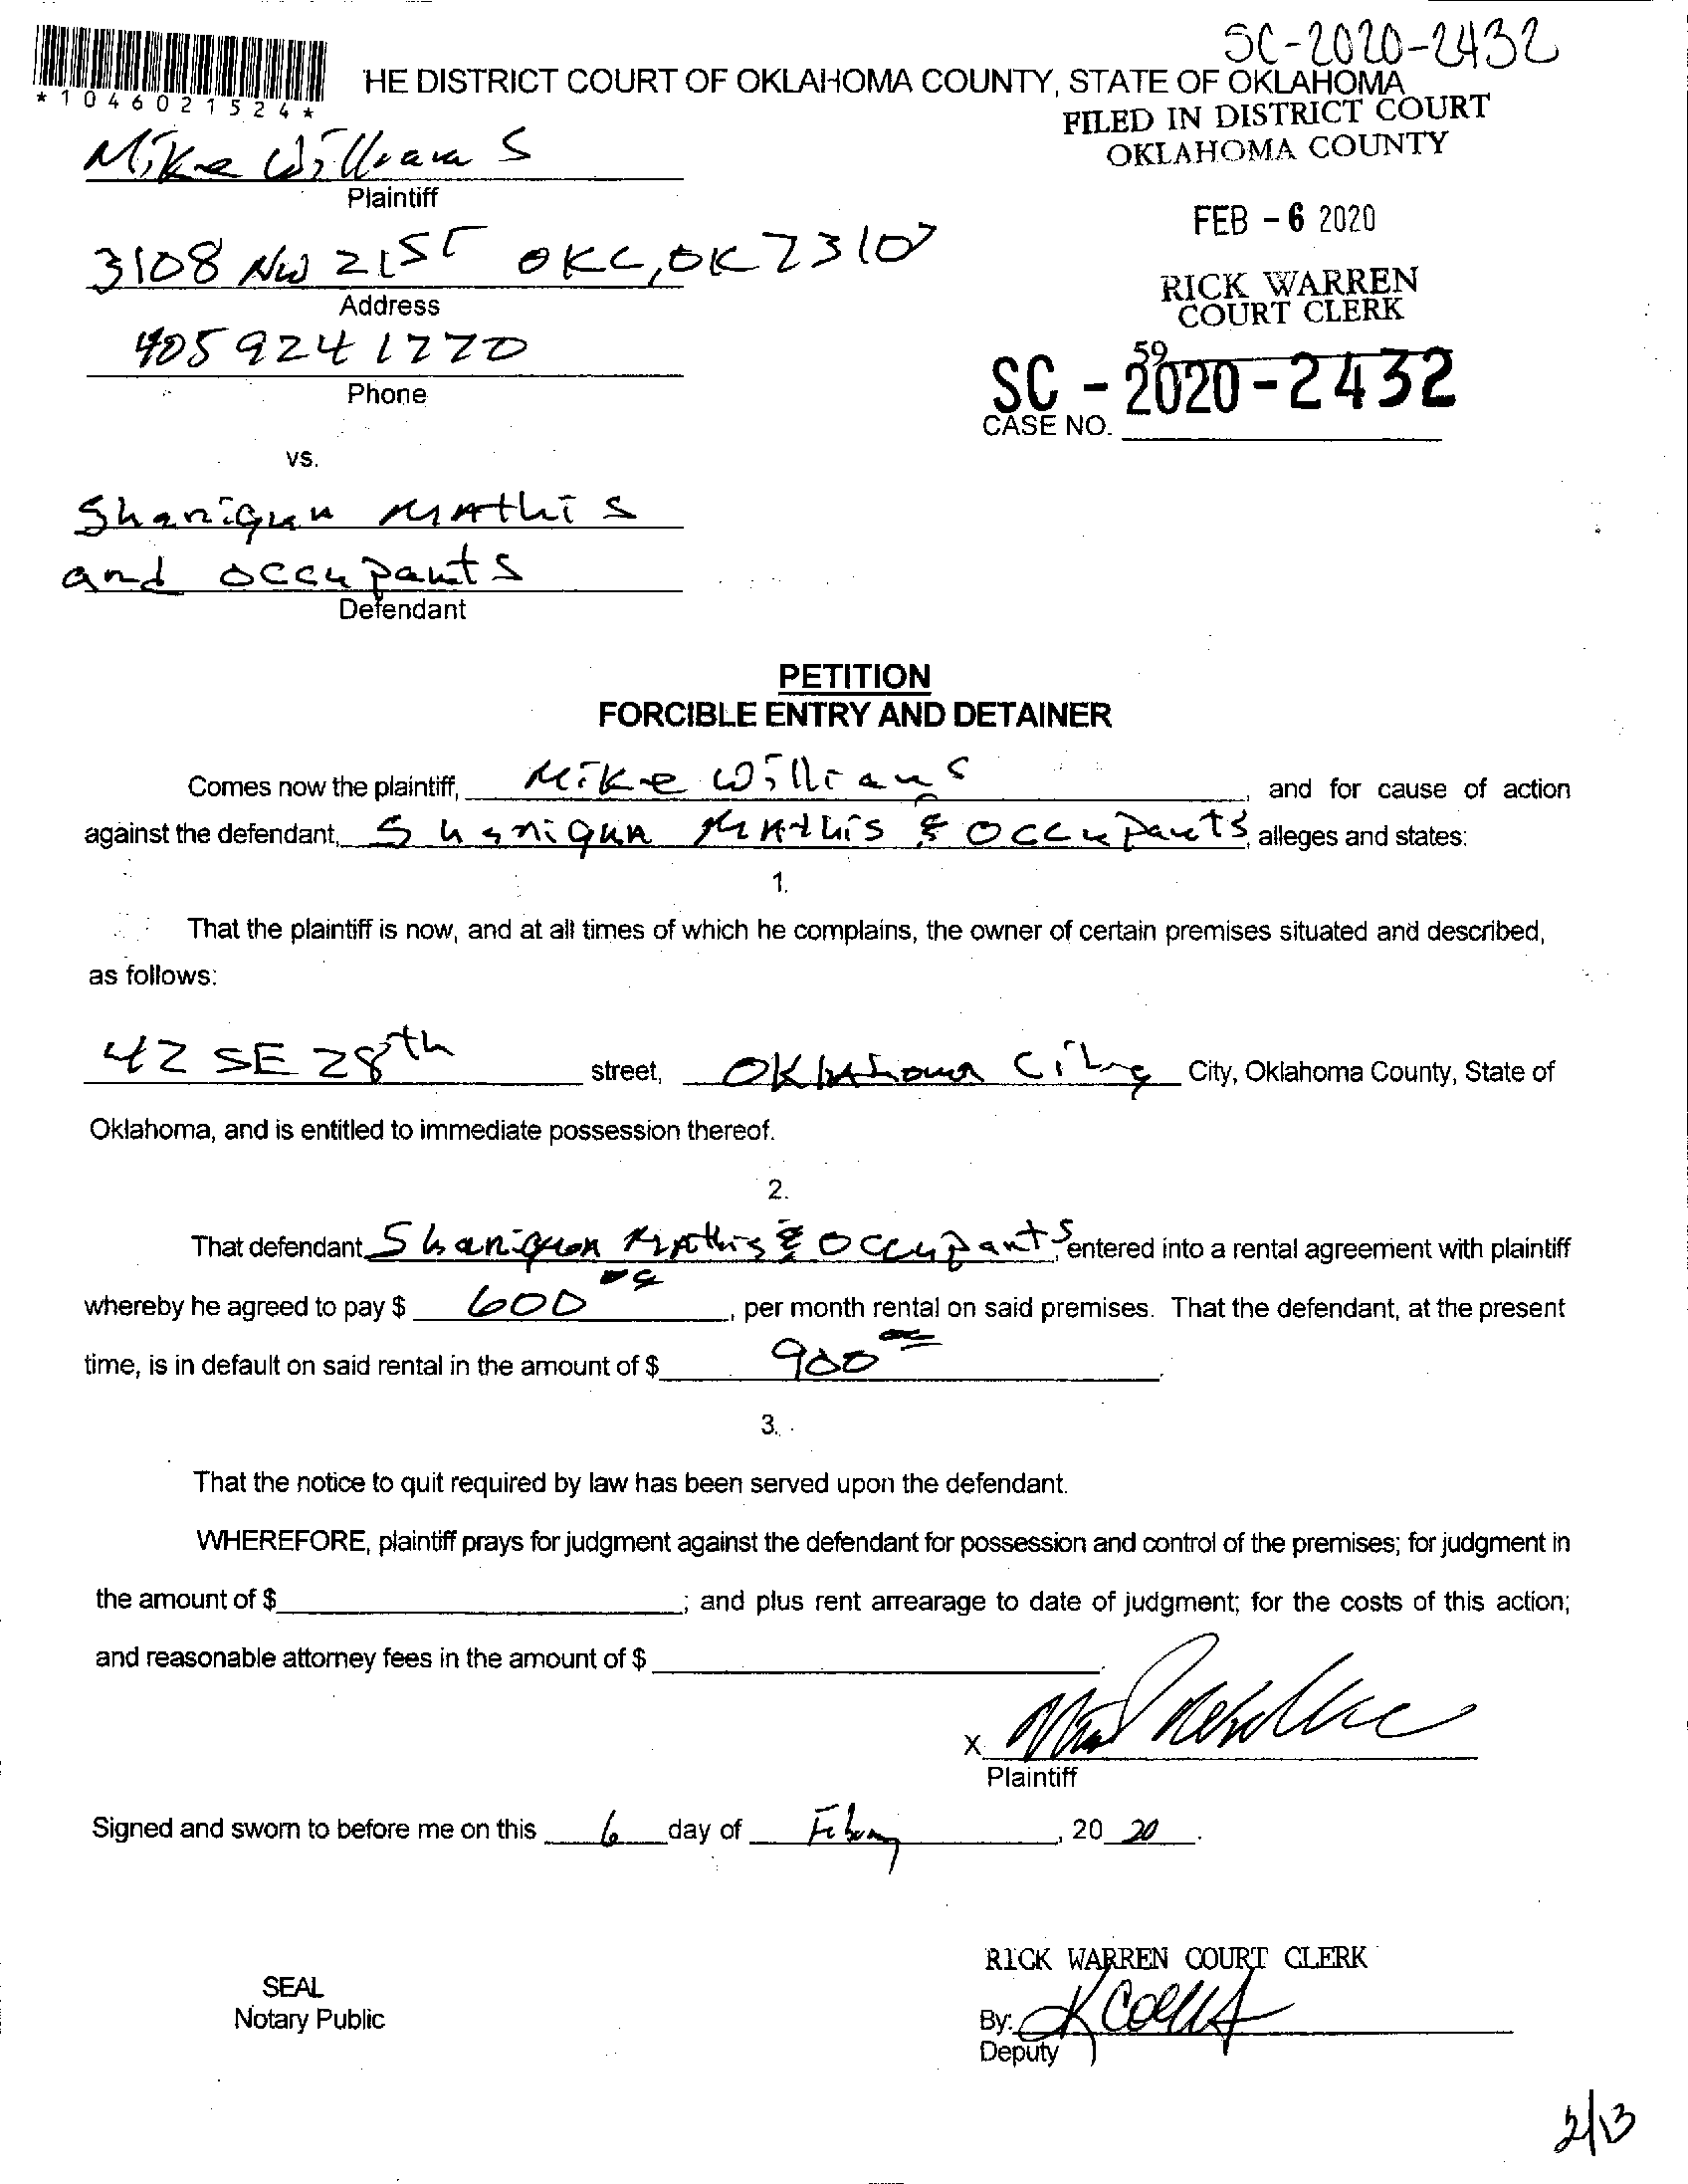 SC-2020-2432
*1046021524*
HE DISTRICT COURT OF OKLAHOMA COUNTY, STATE OF OKLAHOMA
FILED IN DISTRICT COURT
OKLAHOMA COUNTY
Mike Williams
Plaintiff
FEB - 6 2020
3108 NW 21ST OKC, OK 73107
Address
RICK WARREN
COURT CLERK
405 924 1770
Phone
59
SC - 2020-2432
CASE NO.
vs.
Shaniqua Mathis
and occupants
Defendant
PETITION
FORCIBLE ENTRY AND DETAINER
Comes now the plaintiff, Mike Williams, and for cause of action
against the defendant, Shaniqua Mathis & Occupants, alleges and states:
1.
That the plaintiff is now, and at all times of which he complains, the owner of certain premises situated and described,
as follows:
42 SE 28th street, Oklahoma City City, Oklahoma County, State of
Oklahoma, and is entitled to immediate possession thereof.
2.
That defendant Shaniqua Mathis & Occupants, entered into a rental agreement with plaintiff
whereby he agreed to pay $ 600 00, per month rental on said premises. That the defendant, at the present
time, is in default on said rental in the amount of $ 900 00.
3.
That the notice to quit required by law has been served upon the defendant.
WHEREFORE, plaintiff prays for judgment against the defendant for possession and control of the premises; for judgment in
the amount of $ ; and plus rent arrearage to date of judgment; for the costs of this action;
and reasonable attorney fees in the amount of $ .
X
Plaintiff
Signed and sworn to before me on this 6 day of February, 20 20.
RICK WARREN COURT CLERK
SEAL
Notary Public
By:
Deputy
2/13